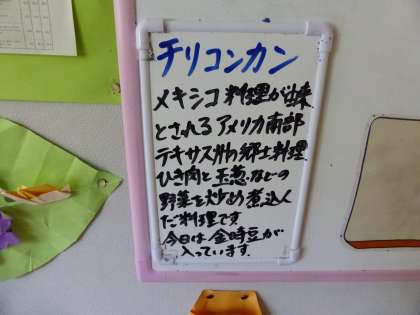 チリコンカン
メキシコ料理が由来
とされるアメリカ南部
テキサス州の郷土料理
ひき肉と玉葱などの
野菜を炒め煮込ん
だ料理です
今日は金時豆が
入っています.